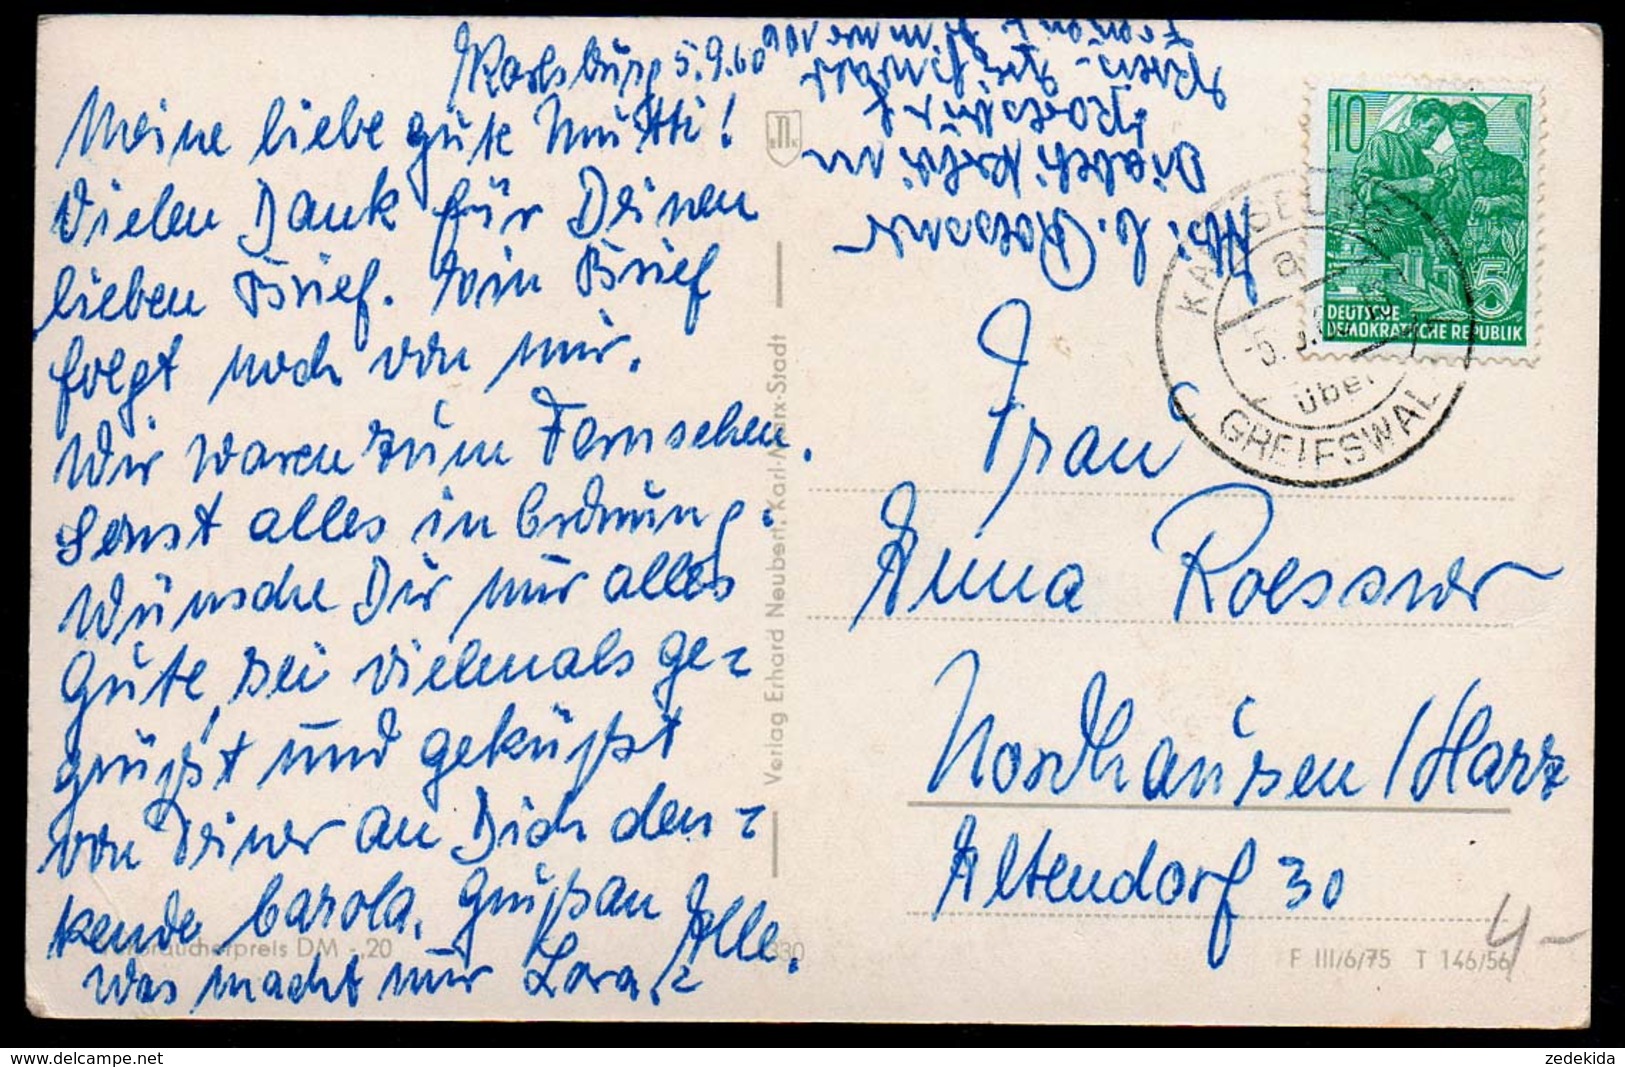 Karlsburg 5.9.60
Meine liebe gute Mutti!
Vielen Dank für Deinen
lieben Brief. Ein Brief
folgt noch von mir.
Wir waren zum Fernsehen.
Sonst alles in Ordnung.
Wünsche Dir nur alles
Gute, sei vielmals ge-
grüßt und geküßt
von Deiner an Dich den-
kende Carola. Gruß an Alle.
Was macht nur Lora?
Abs. C. Roessner
Karlsburg
Verlag Erhard Neubert, Karl-Marx-Stadt
10
5
DEUTSCHE
DEMOKRATISCHE REPUBLIK
a
über
GREIFSWALD
Frau
Anna Roessner
Nordhausen/Harz
Altendorf 30
Verbraucherpreis DM -,20
330
F III/6/75 T 146/56
4-
zedekida
www.delcampe.net